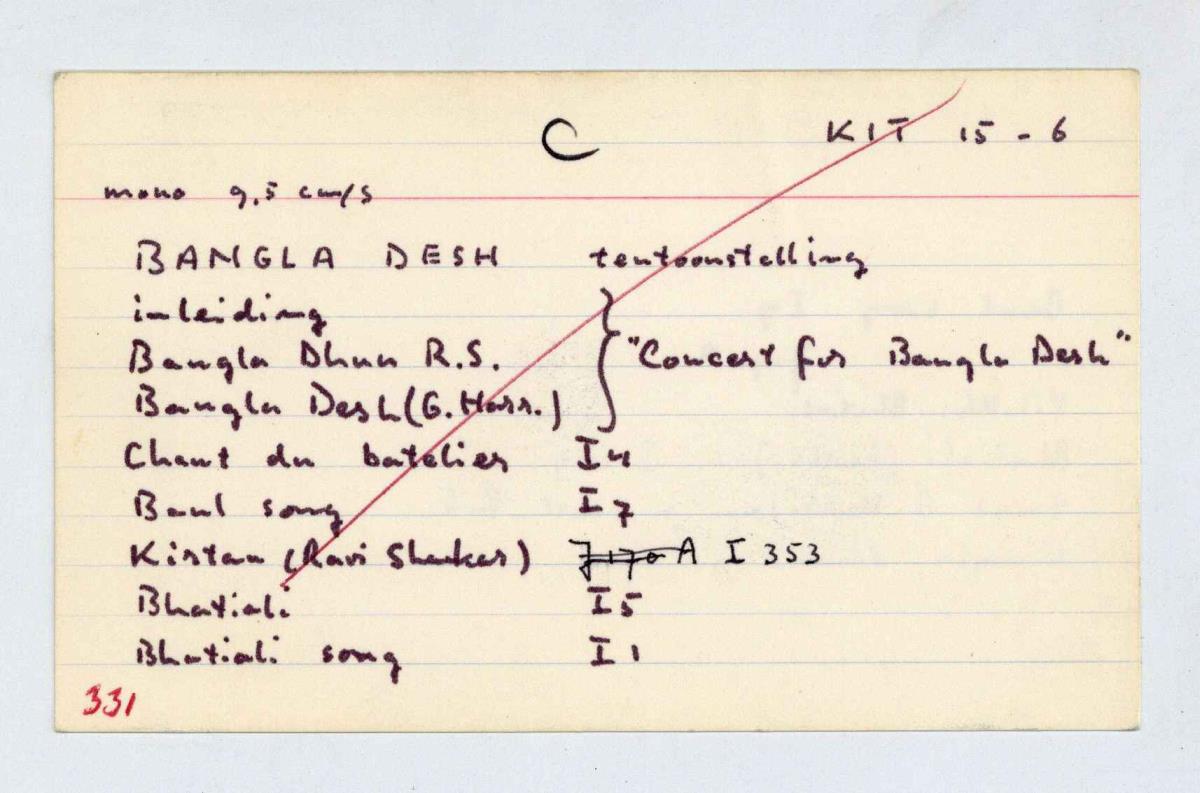 C KIT 15 - 6
mono 9,5 cm/s
BANGLA DESH tentoonstelling
inleiding
Bangla Dhun R.S. } "Concert for Bangla Desh"
Bangla Desh (G. Harr.)
Chant du batelier I 4
Baul song I 7
Kirtan (Ravi Shankar) A I 353
Bhatiali I 5
Bhatiali song I 1
331